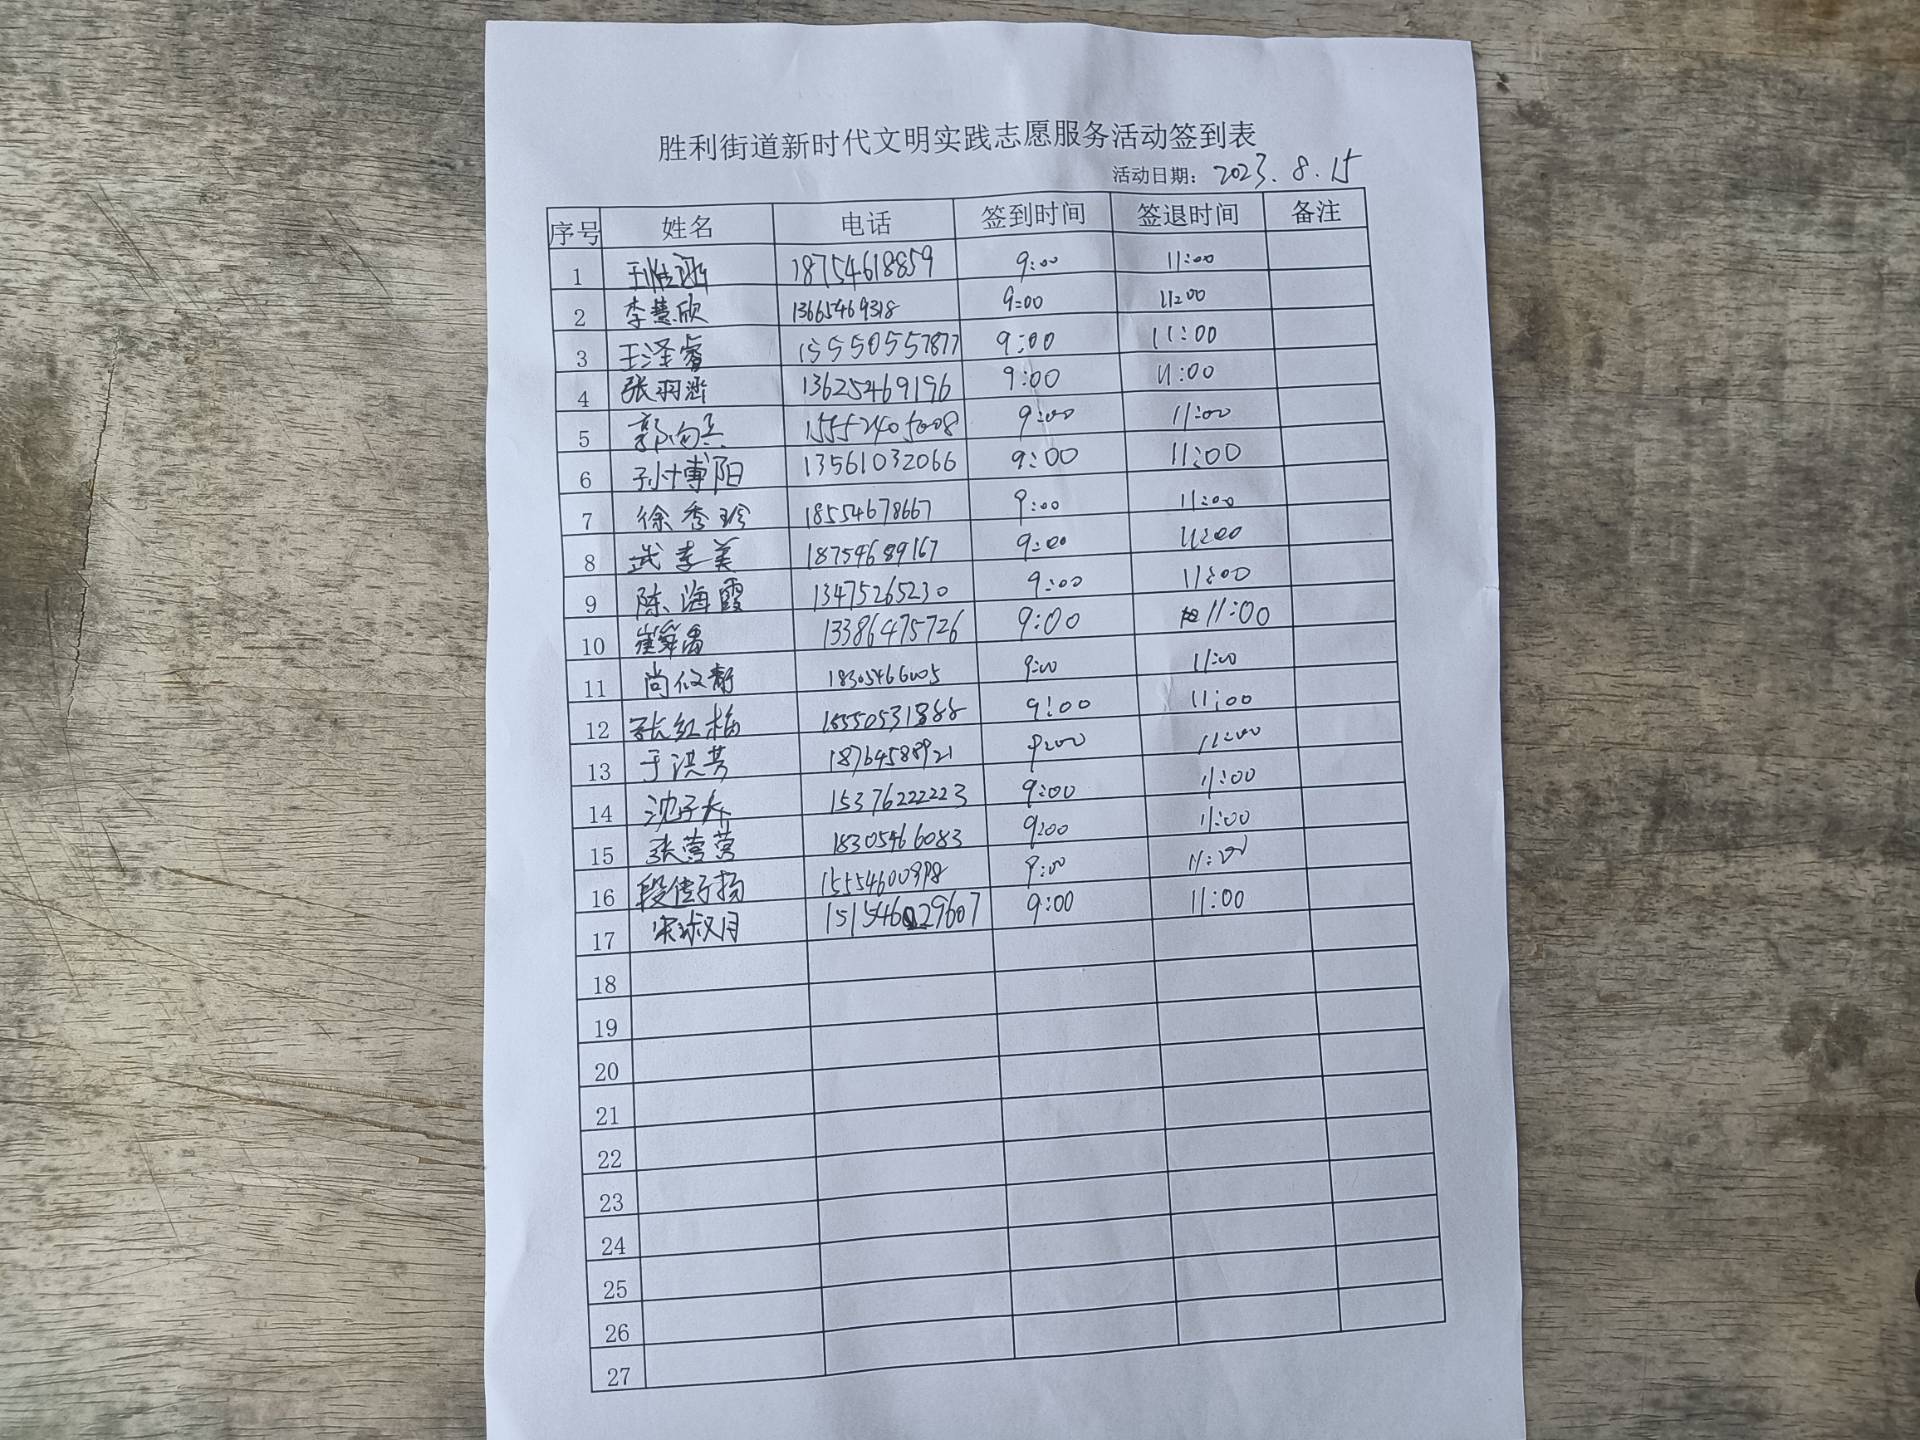 胜利街道新时代文明实践志愿服务活动签到表
活动日期： 2023.8.15
序号 姓名 电话 签到时间 签退时间 备注
1 18754618859 9:00 11:00
2 李慧欣 13665469318 9:00 11:00
3 王泽睿 15550557877 9:00 11:00
4 张羽涵 13625469196 9:00 11:00
5 郭向兵 15552405008 9:00 11:00
6 孙博阳 13561032066 9:00 11:00
7 徐秀珍 18554678667 9:00 11:00
8 武李美 18754689167 9:00 11:00
9 陈海霞 13475265230 9:00 11:00
10 崔舜禹 13386475726 9:00 11:00
11 尚依静 18305466005 9:00 11:00
12 张红梅 15550531888 9:00 11:00
13 于洪芳 18764588921 9:00 11:00
14 沈子乔 15376222223 9:00 11:00
15 张营营 18305466083 9:00 11:00
16 15554600998 9:00 11:00
17 宋淑月 151546029607 9:00 11:00
18
19
20
21
22
23
24
25
26
27